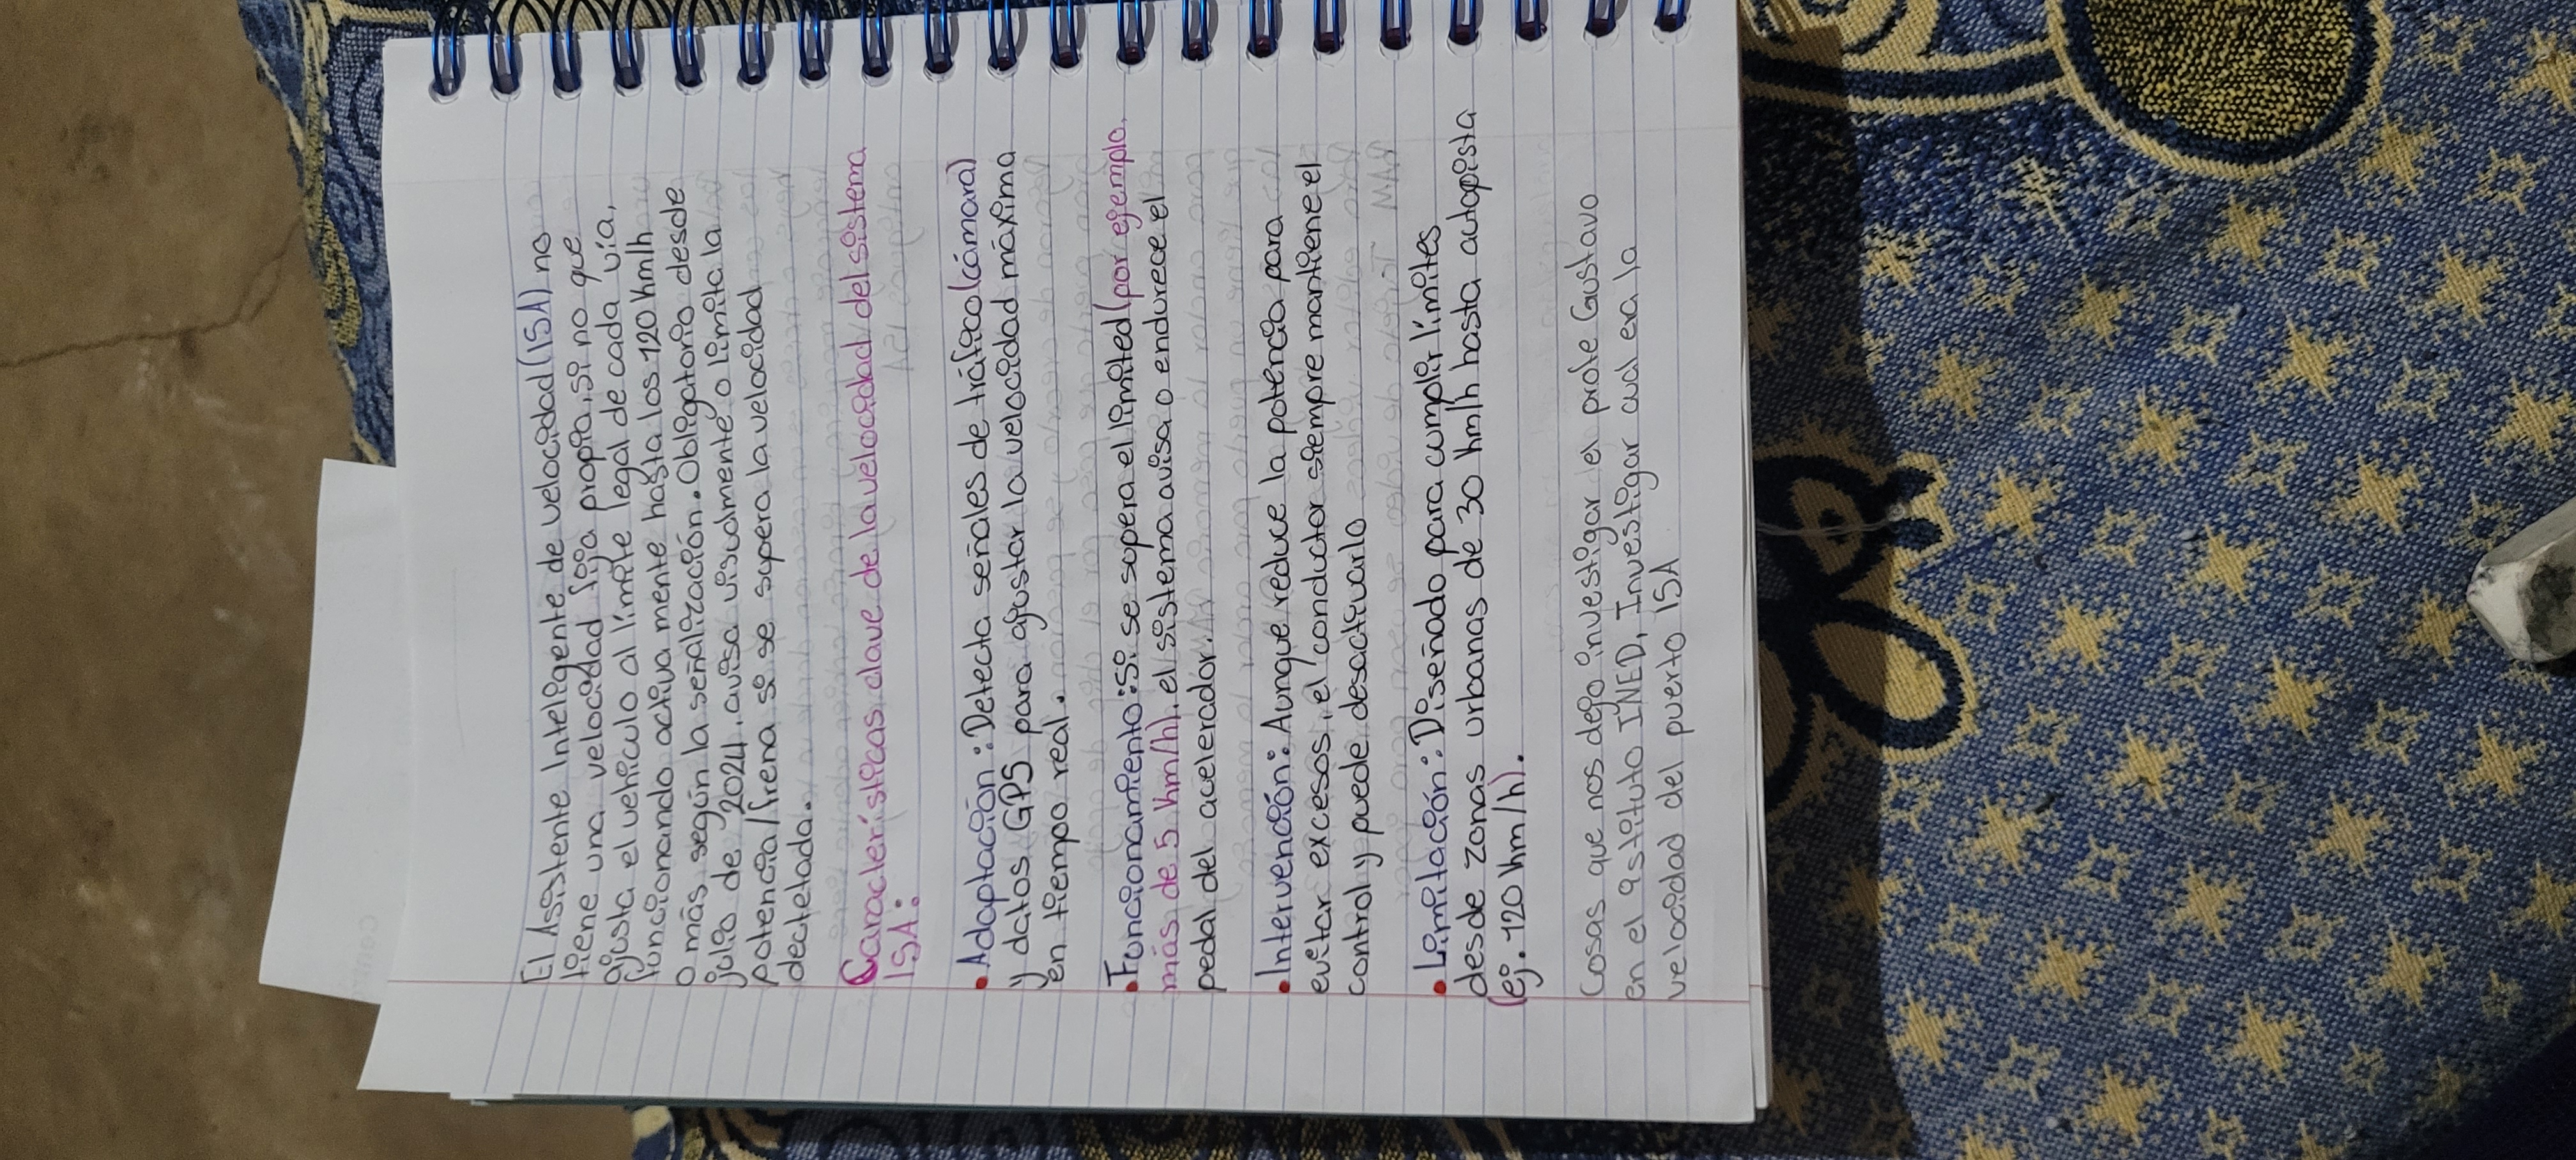 El Asistente Inteligente de velocidad (ISA) no
tiene una velocidad fija propia, si no que
ajusta el vehículo al límite legal de cada vía,
funcionando activa mente hasta los 120 hm/h
o más según la señalización. Obligatorio desde
julio de 2024, avisa visualmente o limita la
potencia/frena si se supera la velocidad
dectetada.
Características clave de la velocidad del sistema
ISA:
• Adaptación: Detecta señales de tráfico (cámara)
y datos GPS para ajustar la velocidad máxima
en tiempo real.
• Funcionamiento: Si se supera el límited (por ejemplo,
más de 5 hm/h), el sistema avisa o endurece el
pedal del acelerador.
• Intervención: Aunque reduce la potencia para
evitar excesos, el conductor siempre mantiene el
control y puede desactivarlo
• Limitación: Diseñado para cumplir límites
desde zonas urbanas de 30 hm/h hasta autopista
(ej. 120 hm/h).
Cosas que nos dejo investigar el profe Gustavo
en el astituto INED, Investigar cual era la
velocidad del puerto ISA